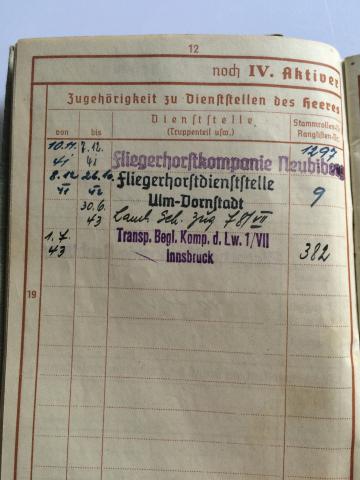 12
noch IV. Aktiver
Zugehörigkeit zu Dienststellen des Heeres
von bis Dienststelle
(Truppenteil usw.)
Stammrollen-
Ranglisten-
10.11. 7.12. 1297
41 41 Fliegerhorstkompanie Neubiberg
8.12. 26.10. Fliegerhorstdienststelle
41 42 Ulm-Dornstadt 9
30.6.
43 78/VII
1.7. Transp. Begl. Komp. d. Lw. 1/VII
43 Innsbruck 382
19